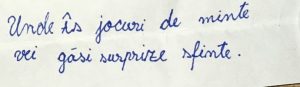 Unde îs jocuri de minte
vei găsi surprize sfinte.